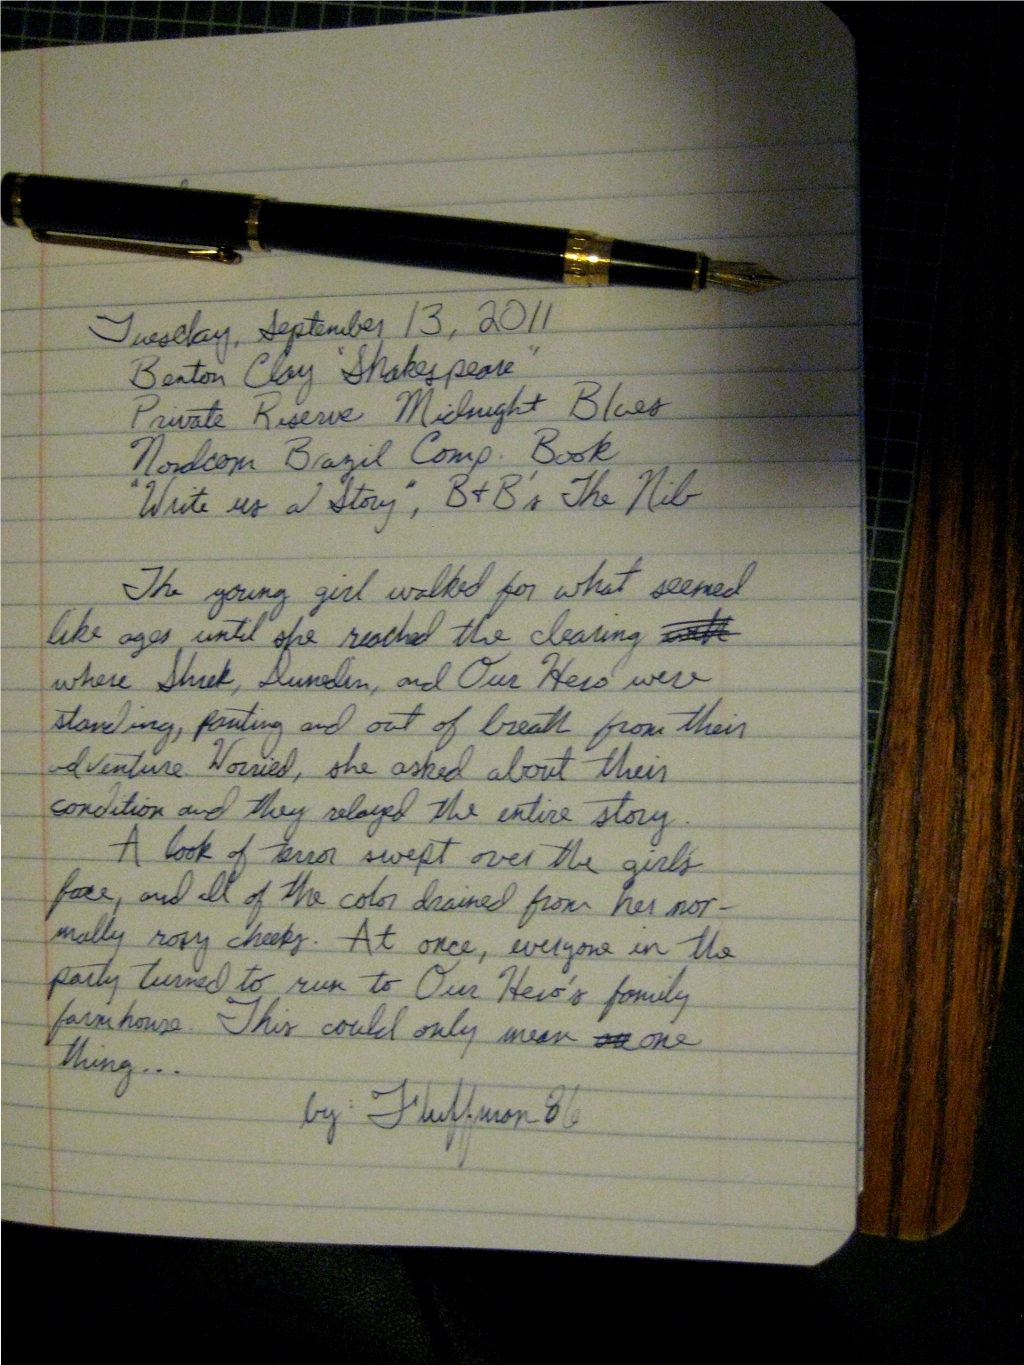 Tuesday, September 13, 2011
Benton Clay "Shakespeare"
Private Reserve Midnight Blues
Nordcom Brazil Comp. Book
"Write us a Story", B+B's The Nib
The young girl walked for what seemed
like ages until she reached the clearing
where Shrek, Dunedin, and Our Hero were
standing, panting and out of breath from their
adventure. Worried, she asked about their
condition and they relayed the entire story.
A look of terror swept over the girl's
face, and all of the color drained from her nor-
mally rosy cheeks. At once, everyone in the
party turned to run to Our Hero's family
farmhouse. This could only mean one
thing...
by: Fluffman86